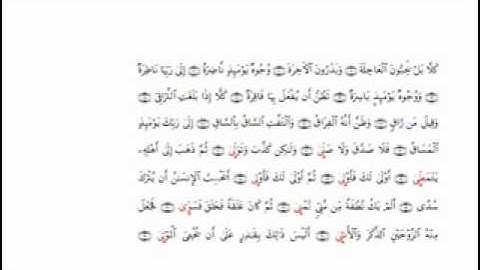 كَلَّا بَلْ تُحِبُّونَ ٱلْعَاجِلَةَ ۝ وَتَذَرُونَ ٱلْأٓخِرَةَ ۝ وُجُوهٌ يَوْمَئِذٍ نَّاضِرَةٌ ۝ إِلَىٰ رَبِّهَا نَاظِرَةٌ
۝ وَوُجُوهٌ يَوْمَئِذٍۭ بَاسِرَةٌ ۝ تَظُنُّ أَن يُفْعَلَ بِهَا فَاقِرَةٌ ۝ كَلَّآ إِذَا بَلَغَتِ ٱلتَّرَاقِىَ ۝
وَقِيلَ مَنْ رَاقٍ ۝ وَظَنَّ أَنَّهُ ٱلْفِرَاقُ ۝ وَٱلْتَفَّتِ ٱلسَّاقُ بِٱلسَّاقِ ۝ إِلَىٰ رَبِّكَ يَوْمَئِذٍ
ٱلْمَسَاقُ ۝ فَلَا صَدَّقَ وَلَا صَلَّىٰ ۝ وَلَٰكِن كَذَّبَ وَتَوَلَّىٰ ۝ ثُمَّ ذَهَبَ إِلَىٰٓ أَهْلِهِۦ
يَتَمَطَّىٰٓ ۝ أَوْلَىٰ لَكَ فَأَوْلَىٰ ۝ ثُمَّ أَوْلَىٰ لَكَ فَأَوْلَىٰٓ ۝ أَيَحْسَبُ ٱلْإِنسَٰنُ أَن يُتْرَكَ
سُدًى ۝ أَلَمْ يَكُ نُطْفَةً مِّن مَّنِىٍّ يُمْنَىٰ ۝ ثُمَّ كَانَ عَلَقَةً فَخَلَقَ فَسَوَّىٰ ۝ فَجَعَلَ
مِنْهُ ٱلزَّوْجَيْنِ ٱلذَّكَرَ وَٱلْأُنثَىٰٓ ۝ أَلَيْسَ ذَٰلِكَ بِقَٰدِرٍ عَلَىٰٓ أَن يُحْـِۧىَ ٱلْمَوْتَىٰ ۝